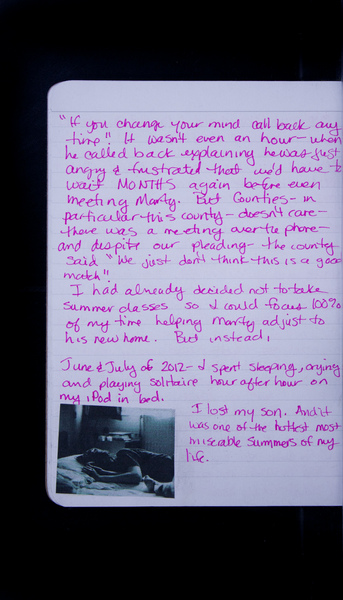 "If you change your mind call back any
time". It wasn't even an hour - when
he called back explaining he was just
angry & frustrated that we'd have to
wait MONTHS again before even
meeting Marty. But Counties - in
particular this county - doesn't care -
there was a meeting over the phone -
and despite our pleading - the county
said "We just don't think this is a good
match".
I had already decided not to take
summer classes so I could focus 100%
of my time helping Marty adjust to
his new home. But instead,
June & July of 2012 - I spent sleeping, crying
and playing solitaire hour after hour on
my iPod in bed.
I lost my son. And it
was one of the hottest most
miserable summers of my
life.